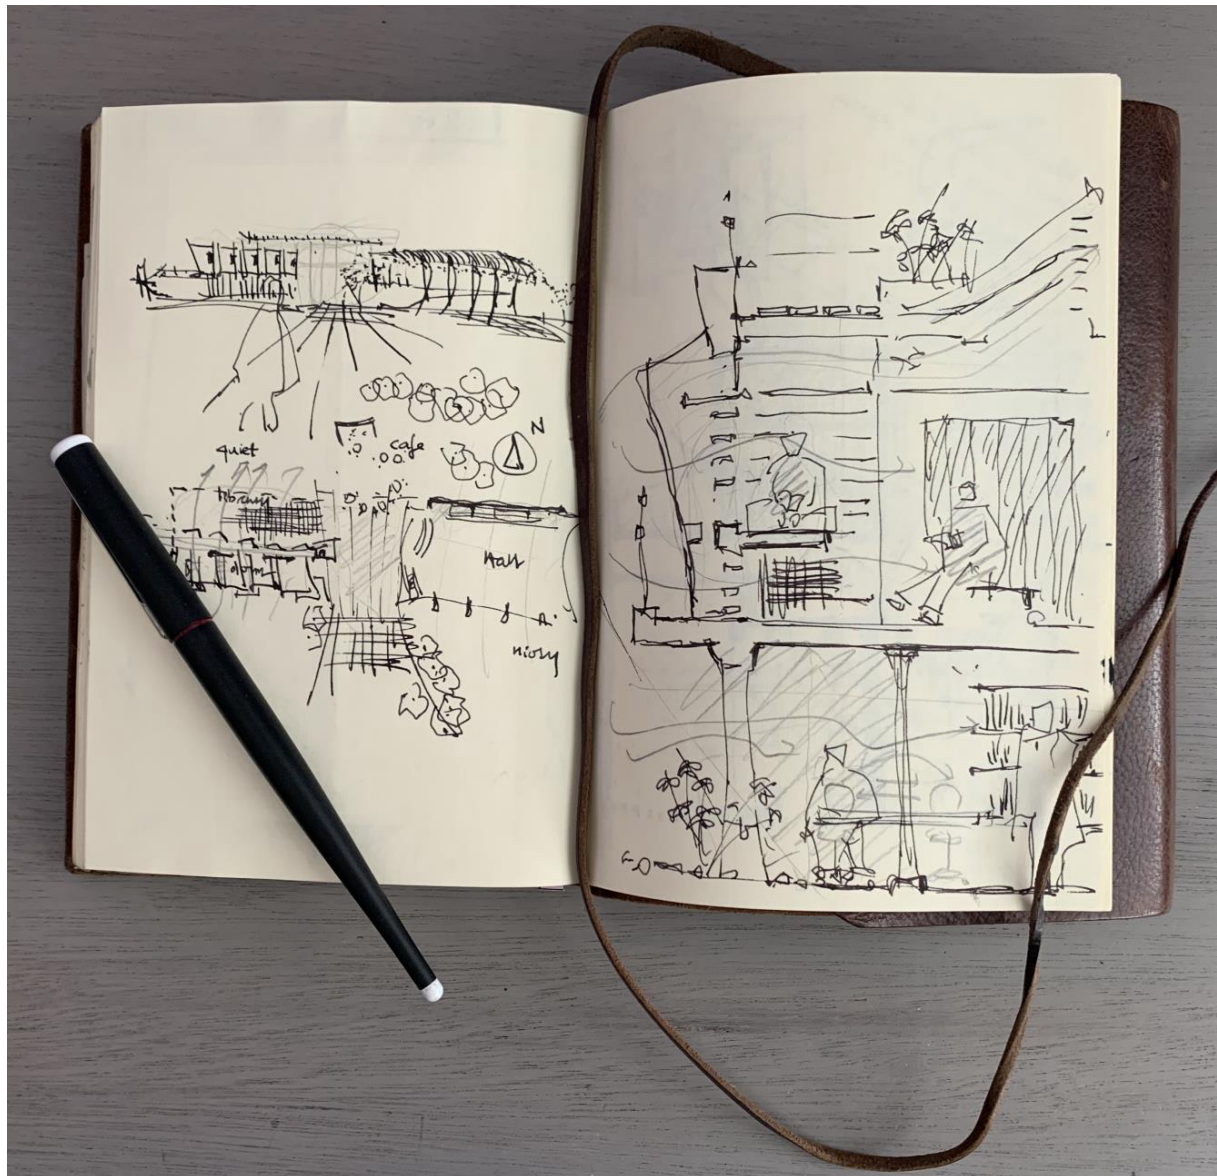 quiet
cafe
N
library
dorm
Hall
noisy